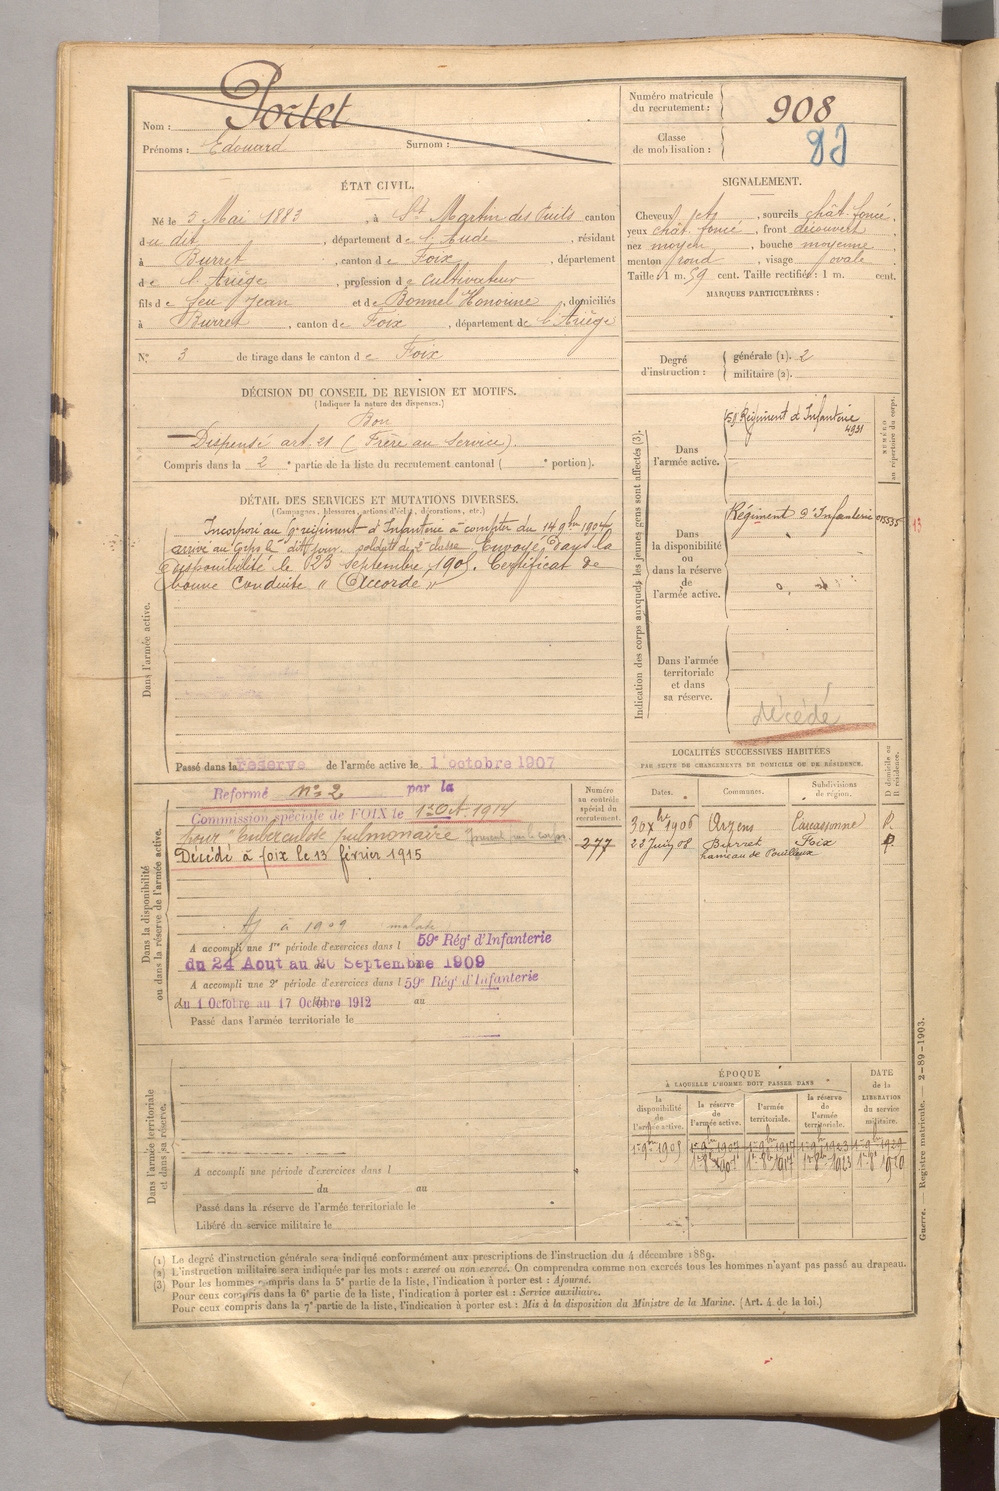 Nom : Portet
Prénoms : Edouard Surnom :
Numéro matricule du recrutement : 908
Classe de mobilisation :
ÉTAT CIVIL.
Né le 5 Mai 1883, à St Martin des Puits canton
du dit, département de l'Aude, résidant
à Burret, canton de Foix, département
de l'Ariège, profession de Cultivateur
fils de feu Jean et de Bonnel Honorine, domiciliés
à Burret, canton de Foix, département de l'Ariège
N° 3 de tirage dans le canton de Foix
SIGNALEMENT.
Cheveux, sourcils chât. foncé,
yeux chât. foncé, front découvert,
nez moyen, bouche moyenne,
menton rond, visage ovale.
Taille : 1 m. 59 cent. Taille rectifiée : 1 m. cent.
MARQUES PARTICULIÈRES :
Degré d'instruction : générale (1). 2
militaire (2).
DÉCISION DU CONSEIL DE REVISION ET MOTIFS.
(Indiquer la nature des dispenses.)
Bon
Dispensé art. 21 (Frère au Service).
Compris dans la 2e partie de la liste du recrutement cantonal ( e portion).
DÉTAIL DES SERVICES ET MUTATIONS DIVERSES.
(Campagnes, blessures, actions d'éclat, décorations, etc.)
Dans l'armée active.
Incorporé au régiment d'Infanterie à compter du 14 9bre 1904
arrivé au Corps le dit jour soldat de 2e classe Envoyé dans la
disponibilité le 23 septembre 1905. Certificat de
bonne Conduite "Accordé"
Passé dans la réserve de l'armée active le 1 octobre 1907
Dans la disponibilité ou dans la réserve de l'armée active.
Reformé n° 2 par la
Commission spéciale de FOIX le 1914
pour "Tuberculose pulmonaire
Décédé à foix le 13 février 1915
à 1909 malade
A accompli une 1re période d'exercices dans l 59e Régt d'Infanterie
du 24 Aout au 20 Septembre 1909
A accompli une 2e période d'exercices dans l 59e Régt d'Infanterie
du 1 Octobre au 17 Octobre 1912 au
Passé dans l'armée territoriale le
Dans l'armée territoriale et dans sa réserve.
A accompli une période d'exercices dans l
du au
Passé dans la réserve de l'armée territoriale le
Libéré du service militaire le
Indication des corps auxquels les jeunes gens sont affectés (3).
NUMÉRO au répertoire du corps.
Dans l'armée active.
Régiment d'Infanterie
4931
Dans la disponibilité ou dans la réserve de l'armée active.
Régiment d'Infanterie 13
Dans l'armée territoriale et dans sa réserve.
décédé
Numéro au contrôle spécial du recrutement
277
LOCALITÉS SUCCESSIVES HABITÉES
PAR SUITE DE CHANGEMENTS DE DOMICILE OU DE RÉSIDENCE.
Dates. Communes. Subdivisions de région. D domicile ou R résidence.
30 1906 Arzens Carcassonne R.
28 Juin 08 Burret Foix
hameau de Pouilleux
ÉPOQUE
À LAQUELLE L'HOMME DOIT PASSER DANS
la disponibilité de l'armée active. la réserve de l'armée active. l'armée territoriale. la réserve de l'armée territoriale. DATE de la LIBÉRATION du service militaire.
1er 9bre 1905 1er 9bre 1907 1er 9bre 1917 1er 9bre 1923 1er 9bre 1929
1er 8bre 1907 1er 8bre 1917 1er 8bre 1923
Guerre. Registre matricule. — 2-89-1903.
(1) Le degré d'instruction générale sera indiqué conformément aux prescriptions de l'instruction du 4 décembre 1889.
(2) L'instruction militaire sera indiquée par les mots : exercé ou non exercé. On comprendra comme non exercés tous les hommes n'ayant pas passé au drapeau.
(3) Pour les hommes compris dans la 5e partie de la liste, l'indication à porter est : Ajourné.
Pour ceux compris dans la 6e partie de la liste, l'indication à porter est : Service auxiliaire.
Pour ceux compris dans la 7e partie de la liste, l'indication à porter est : Mis à la disposition du Ministre de la Marine. (Art. 4 de la loi.)